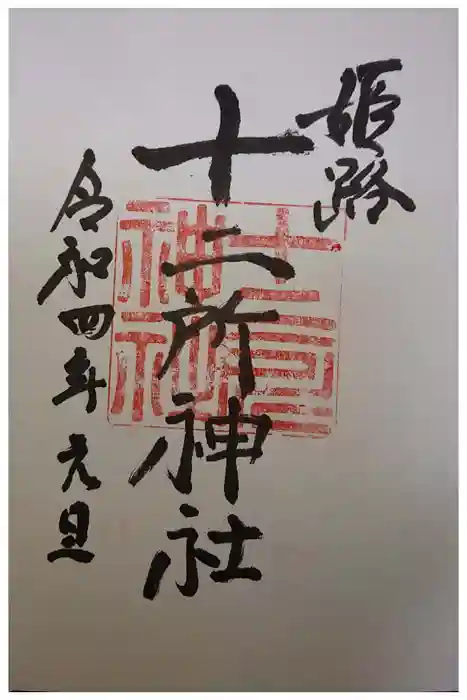 姫路
十二所神社
令和四年元旦
十二所
神社